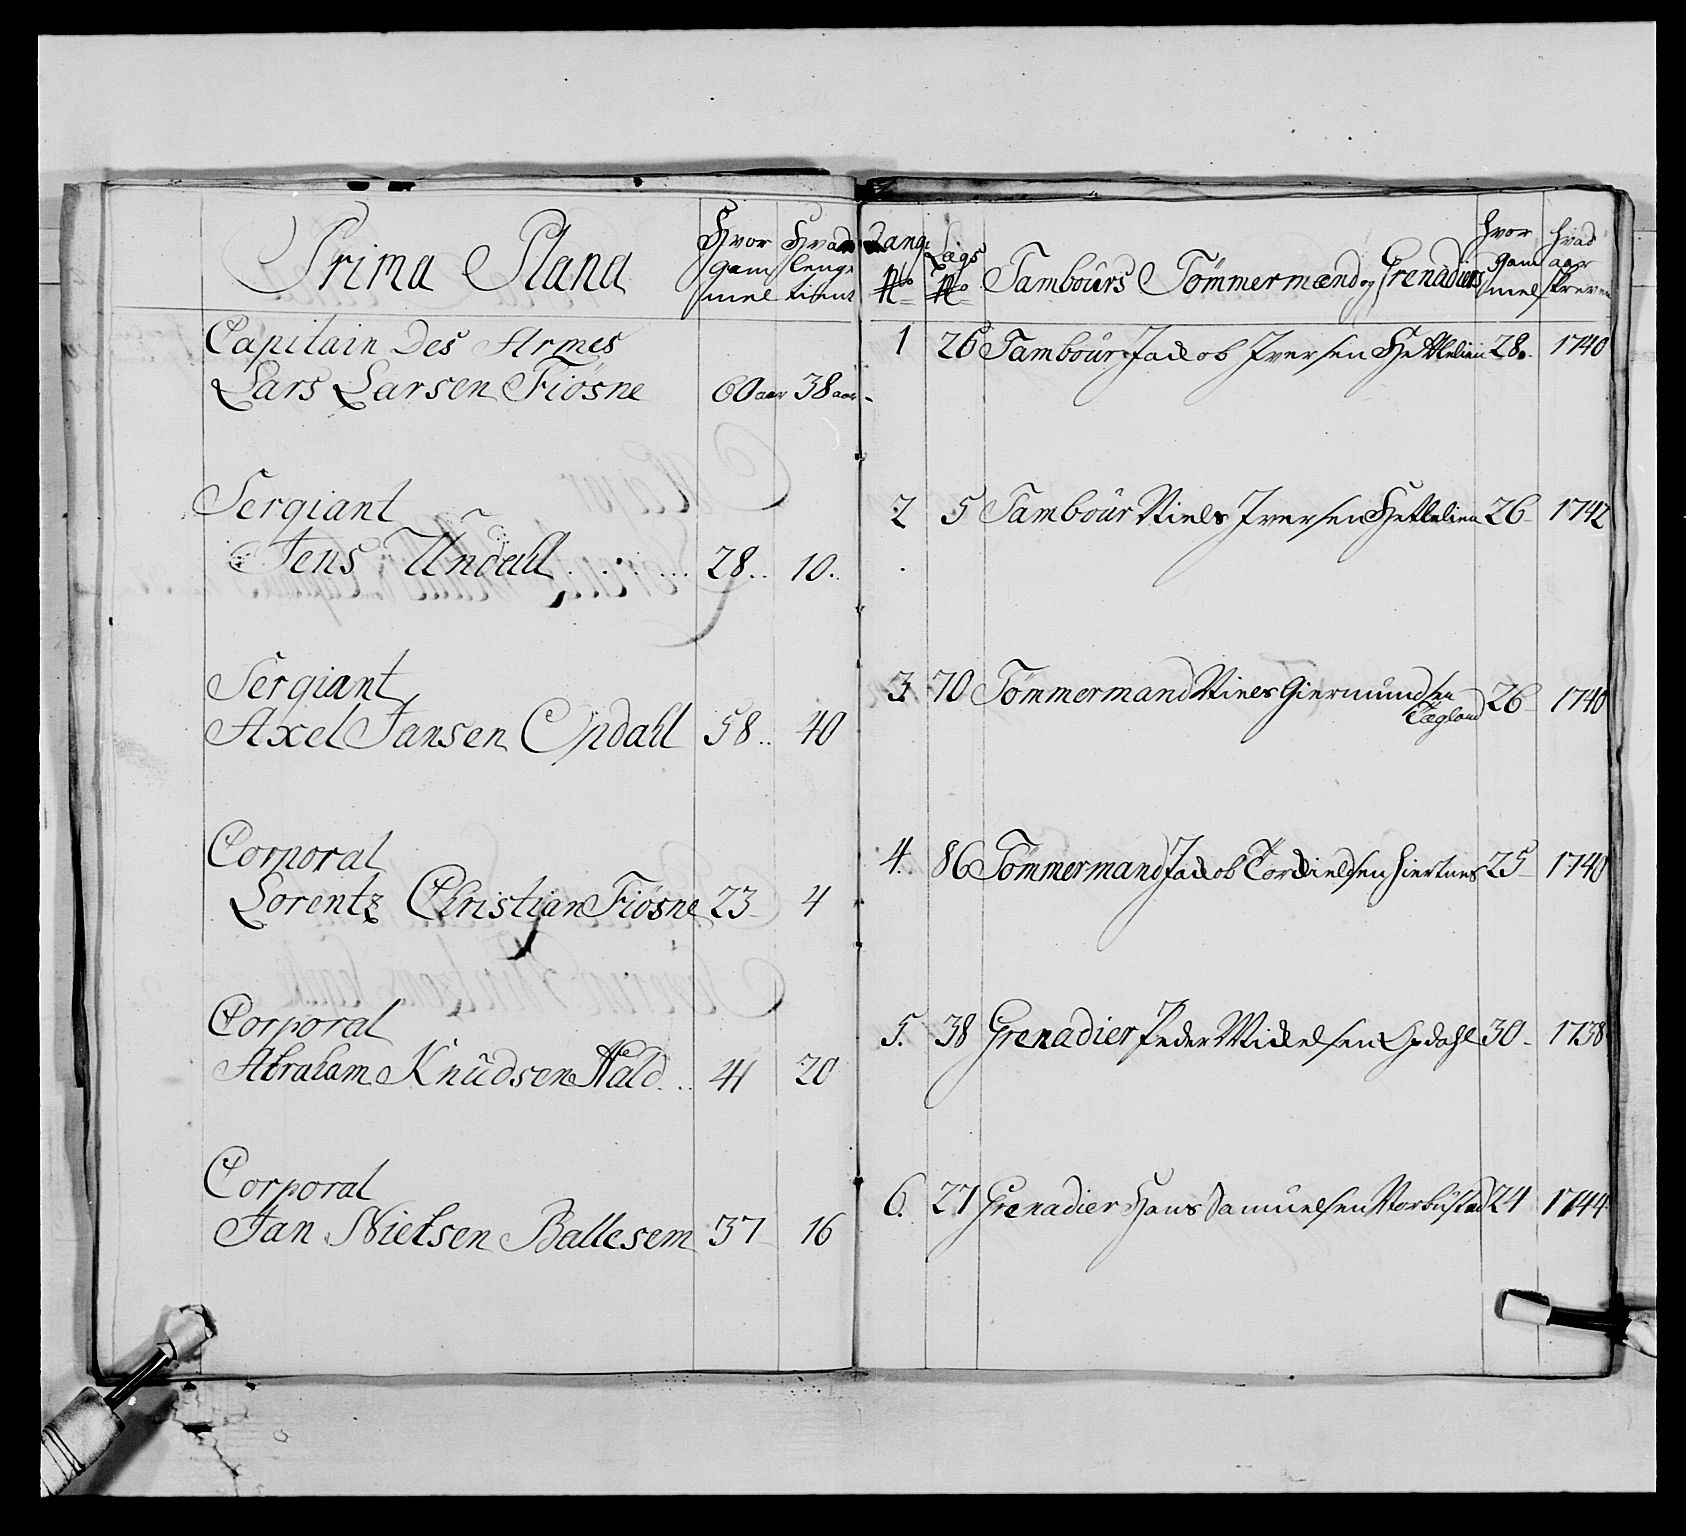 Prima Plana
Hvor gam mel
Hvad lenge tient
Capitain Des Armes
Lars Larsen Fiøsne 60 aar 38 aar
Sergiant
Jens Undahl 28 10
Sergiant
Axel Jansen Opdahl 58 40
Corporal
Lorentz Christian Fiøsne 23 4
Corporal
Abraham Knudsen Hald 41 20
Corporal
Jan Nielsen Ballesem 37 16
Rang No
Lægs No
Tambours Tømmermænd og Grenadiers
hvor gam mel
hvad aar skreven
1 26 Tambour Jacob Iversen Hettelien 28 1740
2 5 Tambour Niels Iversen Hettelien 26 1742
3 70 Tømmermand Niels Giermundsen 26 1740
Tegland
4. 86 Tømmermand Jacob Tordielsen Hiertnes 25 1740
5. 38 Grenadier Peder Mickelsen Opdahl 30 1738
6. 27 Grenadier Hans Samuelsen 24 1744